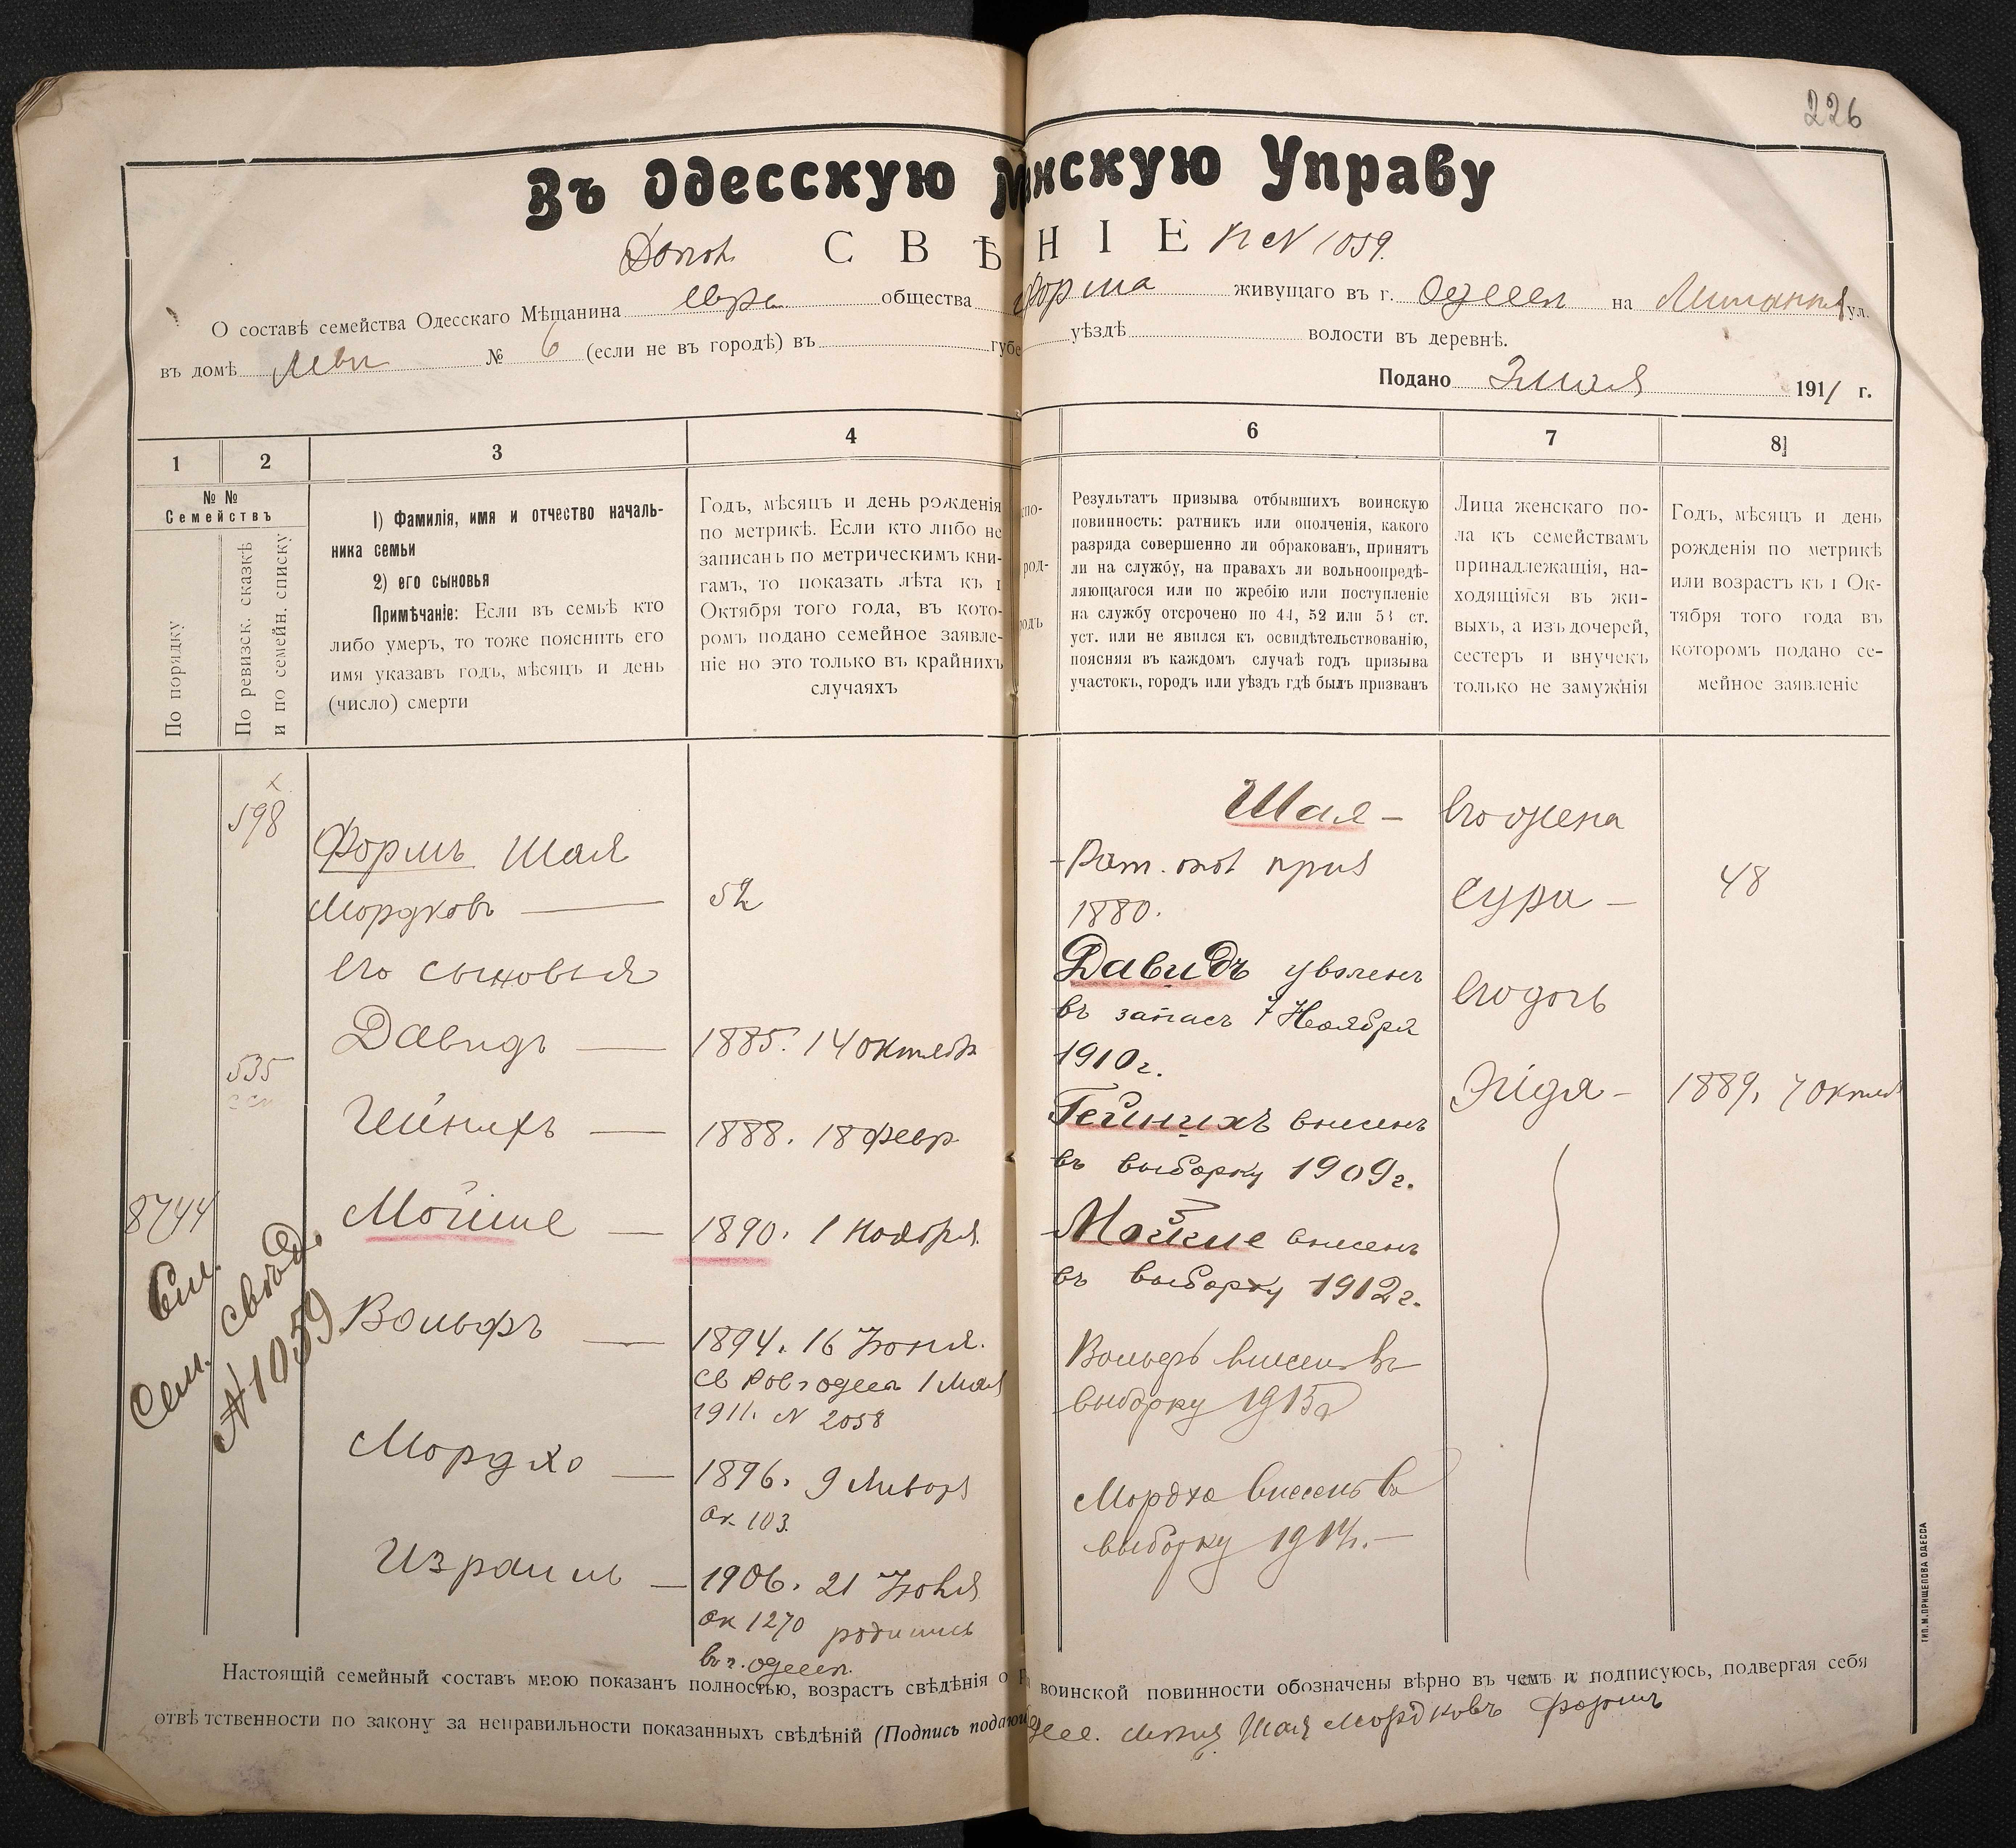 226
Въ Одесскую М нскую Управу
С В Ѣ Н I Е
К № 1059.
О составѣ семейства Одесскаго Мѣщанина Евр. общества Форма живущаго въ г. Одессѣ на ул.
въ домѣ Леви № 6 (если не въ городѣ) въ губе уѣздѣ волости въ деревнѣ.
Подано 3 мая 1911 г.
1 2 3 4 6 7 8
№ №
Семействъ
По порядку
По ревизск. сказкѣ
и по семейн. списку
1) Фамилія, имя и отчество началь-
ника семьи
2) его сыновья
Примѣчаніе: Если въ семьѣ кто
либо умеръ, то тоже пояснить его
имя указавъ годъ, мѣсяцъ и день
(число) смерти
Годъ, мѣсяцъ и день рожденія
по метрикѣ. Если кто либо не
записанъ по метрическимъ кни-
гамъ, то показать лѣта къ 1
Октября того года, въ кото-
ромъ подано семейное заявле-
ніе но это только въ крайнихъ
случаяхъ
спо-
род-
родъ
Результатъ призыва отбывшихъ воинскую
повинность: ратникъ или ополченія, какого
разряда совершенно ли обракованъ, принятъ
ли на службу, на правахъ ли вольноопредѣ-
ляющагося или по жребію или поступленіе
на службу отсрочено по 44, 52 или 53 ст.
уст. или не явился къ освидѣтельствованію,
поясняя въ каждомъ случаѣ годъ призыва
участокъ, городъ или уѣздъ гдѣ былъ призванъ
Лица женскаго по-
ла къ семействамъ
принадлежащія, на-
ходящіяся въ жи-
выхъ, а изъ дочерей,
сестеръ и внучекъ
только не замужнія
Годъ, мѣсяцъ и день
рожденія по метрикѣ
или возрастъ къ 1 Ок-
тября того года въ
которомъ подано се-
мейное заявленіе
х
598
Формъ Шая
Мордковъ — 52
его сыновья
Давидъ — 1885. 14 октября
535
Гейнихъ — 1888. 18 февр.
8744
Мойше — 1890. 1 Ноября
См. свѣд.
Сем. № 1059
Вольфъ — 1894. 16 Іюня.
св. о Одесса 1 Мая
1911. № 2058
Мордхо — 1896. 9 Января
ак. 103.
Израиль — 1906. 21 Іюня
ак 1270 родились
въ г. Одессѣ.
Шая —
Рат. опол приз
1880.
Давидъ уволенъ
въ запасъ 7 Ноября
1910 г.
Гейнихъ внесенъ
въ выборку 1909 г.
Мойше внесенъ
въ выборку 1912 г.
Вольфъ внесенъ въ
выборку 1915
Мордхо внесенъ въ
выборку 1917. —
Его жена
Сура — 48
Его дочь
Эйдя — 1889. 7 Октяб
Настоящій семейный составъ мною показанъ полностью, возрастъ свѣдѣнія о воинской повинности обозначены вѣрно въ чемъ и подписуюсь, подвергая себя
отвѣтственности по закону за неправильности показанныхъ свѣдѣній (Подпись подающ Одес. Шая Мордковъ Формъ
ТИП. М. ПРИЩЕПОВА ОДЕССА